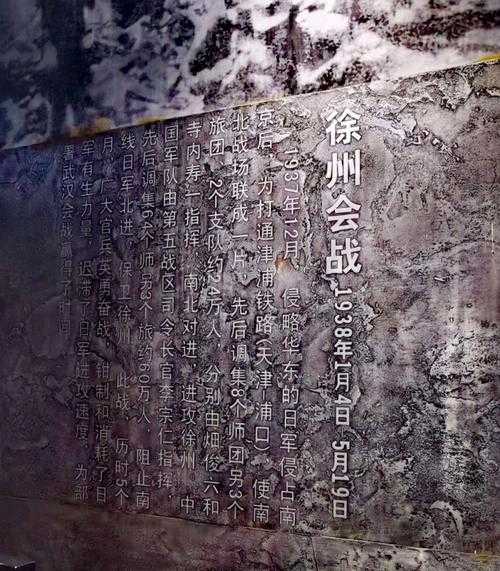 徐州会战 1938年1月4日 5月19日
1937年12月，侵略华东的日军侵占南
京后，为打通津浦铁路(天津—浦口)，使南
北战场联成一片，先后调集8个师团另3个
旅团、2个支队约24万人，分别由畑俊六和
寺内寿一指挥，南北对进，进攻徐州。中
国军队由第五战区司令长官李宗仁指挥，
先后调集64个师另3个旅约60万人，阻止南
线日军北进，保卫徐州。此战，历时5个
月，广大官兵英勇奋战，钳制和消耗了日
军有生力量，迟滞了日军进攻速度，为部
署武汉会战赢得了时间。